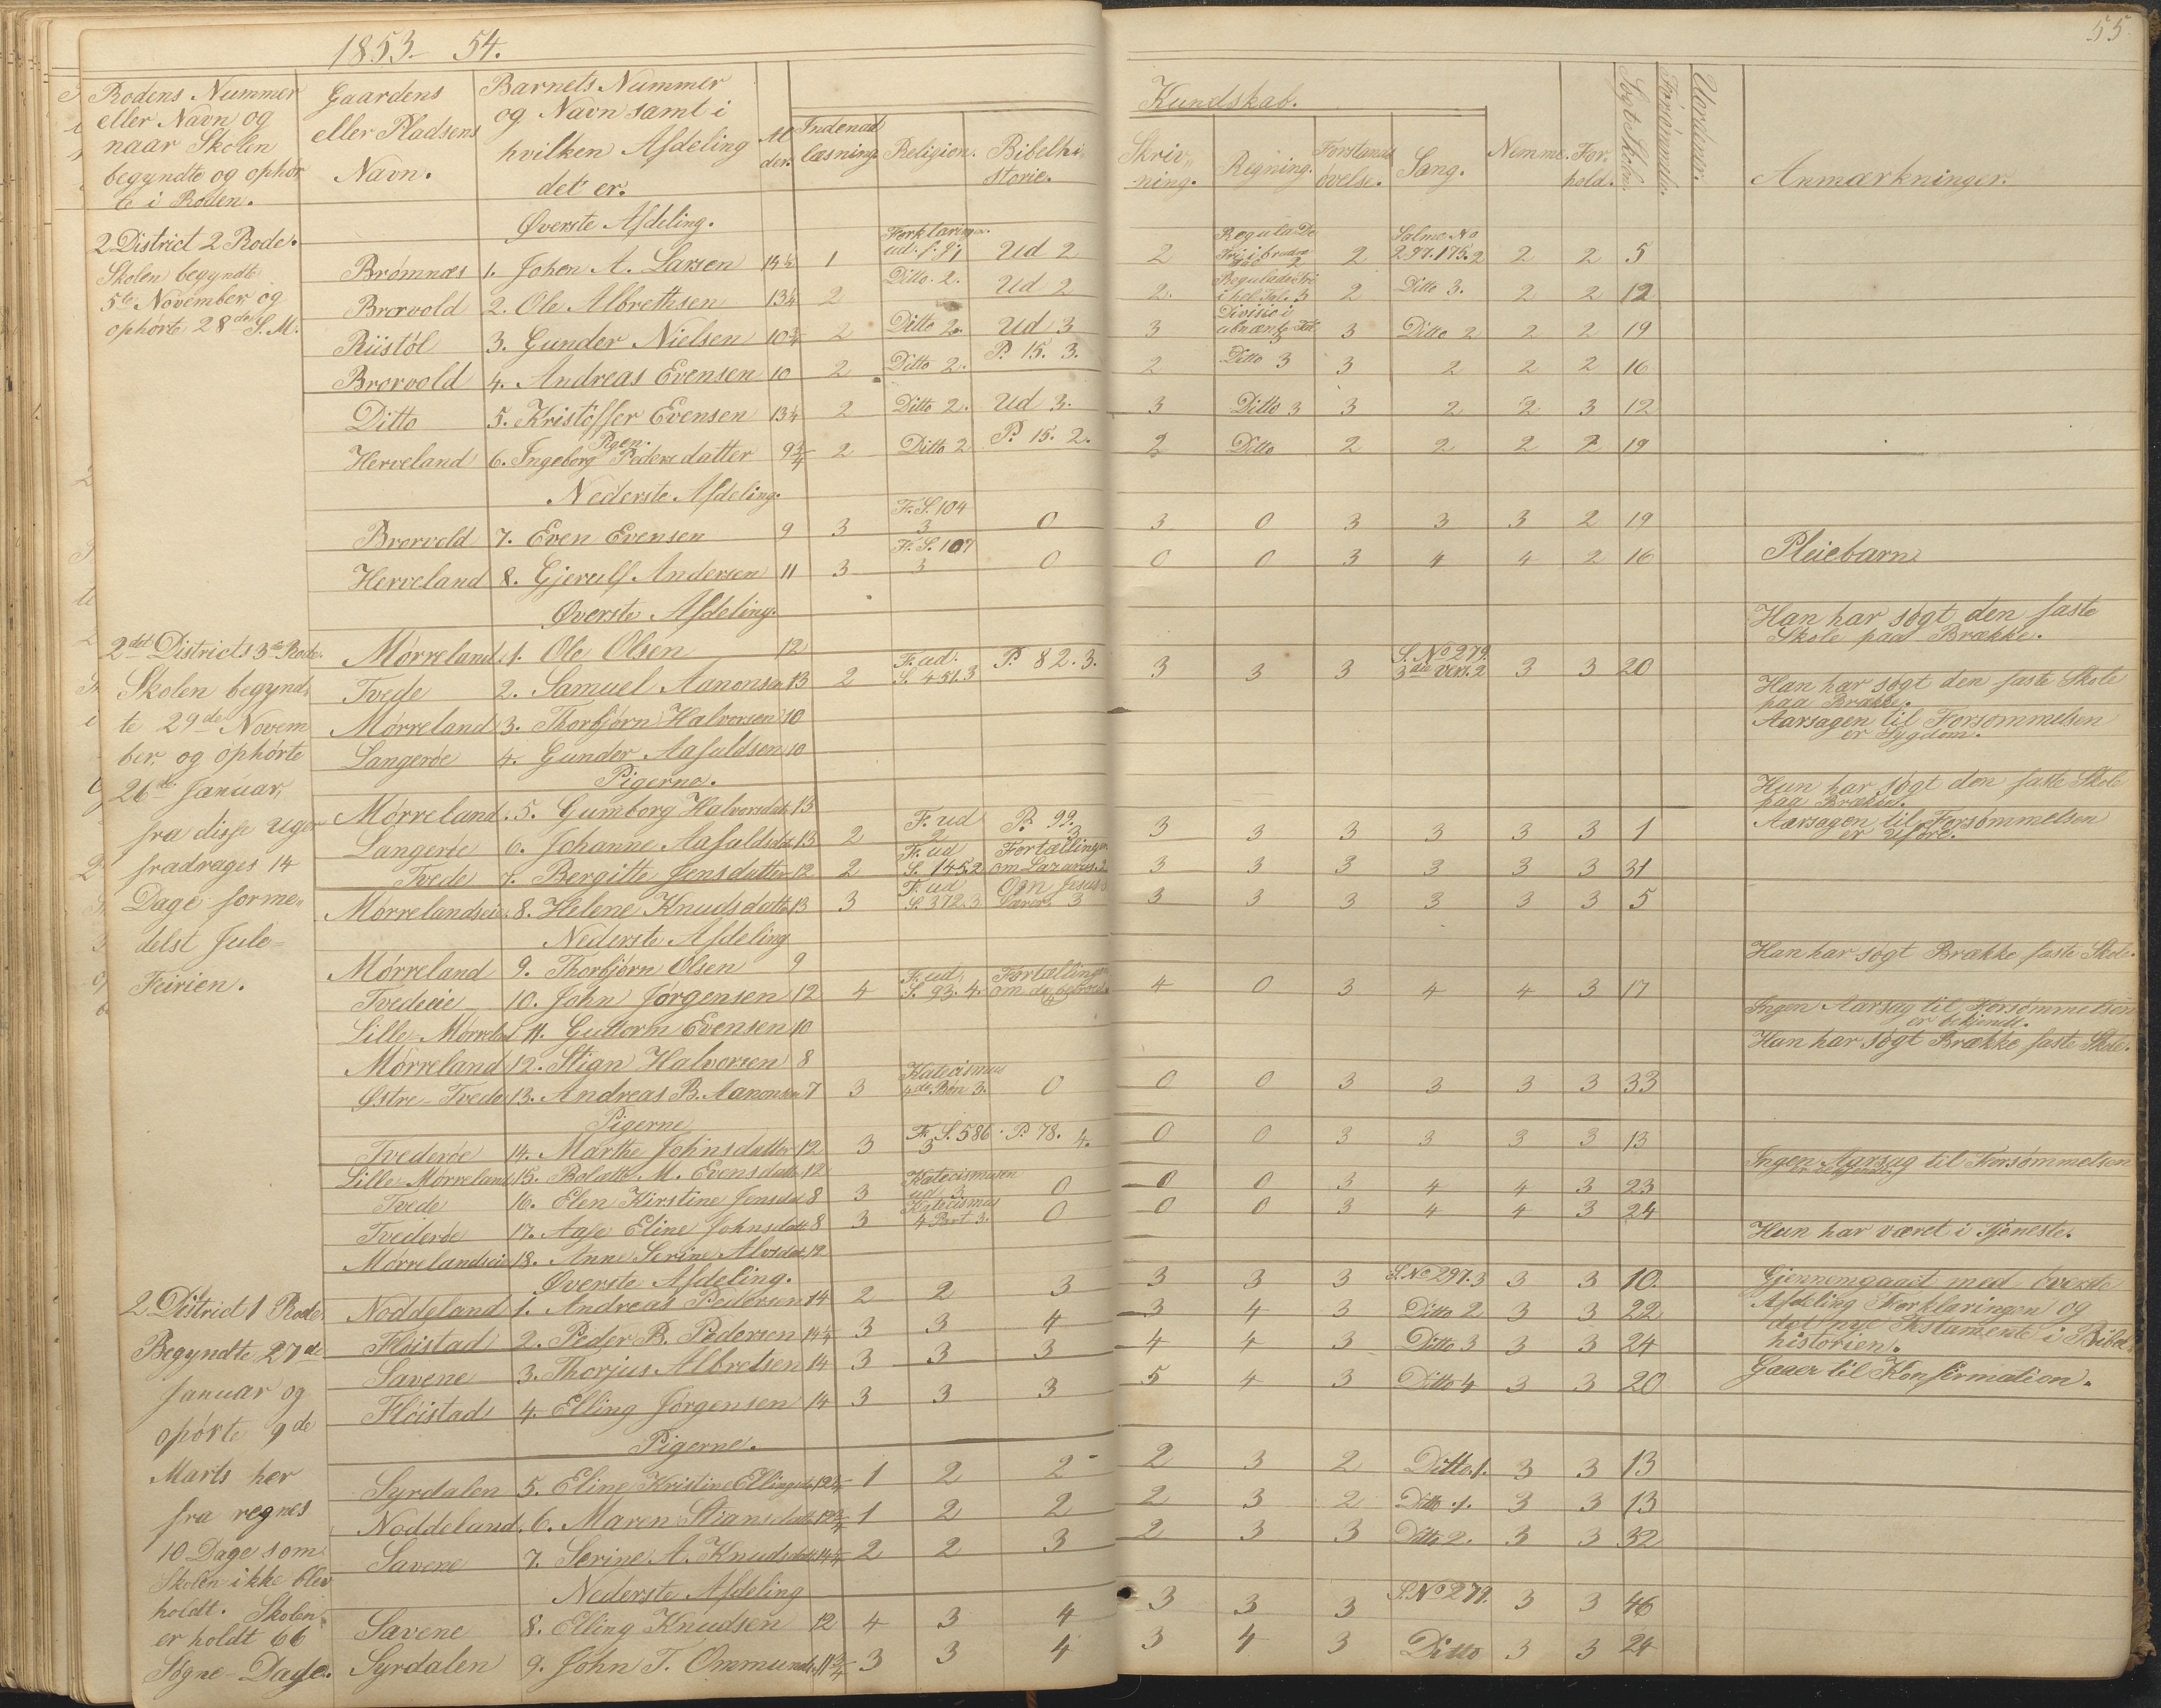 1853–54.
55.
Rodens Nummer eller Navn og naar Skolen begyndte og ophørte i Roden.
Gaardens eller Pladsens Navn.
Barnets Nummer og Navn samt i hvilken Afdeling det er.
Alder.
Indenad læsning.
Religion.
Bibelhistorie.
Kundskab.
Skrivning.
Regning.
Forstands øvelse.
Sang.
Nemme.
Forhold.
Søgt Skolen.
Forsømmelse.
Uordner.
Anmærkninger.
Øverste Afdeling.
2 District 2 Rode.
Skolen begyndte
5te November og
ophørte 28de S. M.
Brømnæs 1. Johen A. Larsen 14½ 1 Forklaringen ud. Ud 2 2 Regula De Tri i brudne 2 2 Salme No 297. 175. 2 2 2 5
Brorvold 2. Ole Albrethsen 13¼ 2 Ditto. 2. Ud 2 2. Regulade Tri i hel Tal. 3 2 Ditto 3. 2 2 12
Riistøl 3. Gunder Nielsen 10¾ 2 Ditto 2. Ud 3 3 Divisio i ubnænt Tal 3 3 Ditto 2 2 2 19
Brorvold 4. Andreas Evensen 10 2 Ditto 2. P. 15. 3. 2 Ditto 3 3 2 2 2 16
Ditto 5. Kristoffer Evensen 13¼ 2 Ditto 2. Ud 3. 3 Ditto 3 3 2 2 3 12
Pgen.
Herveland 6. Ingeborg Pedersdatter 9¾ 2 Ditto 2 P. 15. 2. 2 Ditto 2 2 2 2 19
Nederste Afdeling.
Brorvold 7. Even Evensen 9 3 F. S. 104 3 0 3 0 3 3 3 2 19
Herveland 8. Gjerulf Andersen 11 3 F. S. 107 3 0 0 0 3 4 4 2 16 Pleiebarn
Øverste Afdeling.
2det Districts 3die Rode.
Skolen begynd
te 29de Novem
ber, og ophørte
26de Januar,
fra disse Uger
fradrages 14
Dage forme
delst Jule=
Feirien.
Mørreland 1. Ole Olsen 12 Han har søgt den faste Skole paa Brække.
Tvede 2. Samuel Aanonsen 13 2 F. ud. S. 451. 3 P. 82. 3. 3 3 3 S. No 279. 3die Vers. 2 3 3 20
Mørreland 3. Thorbjørn Halvorsen 10 Han har søgt den faste Skole paa Brække.
Langerøe 4. Gunder Aasuldsen 10 Aarsagen til Forsømmelsen er Sygdom.
Pigerne.
Mørreland. 5. Gumborg Halvorsdatt 13 Hun har søgt den faste Skole paa Brække.
Langerøe 6. Johanne Aasuldsdat 13 2 F. ud 2 P. 99. 3 3 3 3 3 3 3 1 Aarsagen til Forsømmelsen er Uføre.
Tvede 7. Bergitte Jensdatter 12 2 F. ud S. 145. 2 Fortællingen om Lazarus. 2 3 3 3 3 3 3 31
Mørrelandseie 8. Helene Knudsdatter 13 3 F. ud S. 372. 3 Om Jesus Lærer 3 3 3 3 3 3 3 5
Nederste Afdeling
Mørreland 9. Thorbjørn Olsen 9 Han har søgt Brække faste Skole.
Tvedeeie 10. John Jørgensen 12 4 F. ud S. 93. 4. Fortællingen om 4 0 3 4 4 3 17
Lille-Mørreland 11. Guttorm Evensen 10 Ingen Aarsag til Forsømmelsen er bekjendt.
Mørreland 12. Stian Halvorsen 8 Han har søgt Brække faste Skole.
Østre-Tvede 13. Andreas B. Aanonsen 7 3 Katecismus 4de Bøn 3. 0 0 0 3 3 3 3 33
Pigerne
Tvederøe 14. Marthe Johnsdatter 12 3 F. S. 586 3 P. 78. 4. 0 0 3 3 3 3 13
Lille-Mørreland 15. Bolætte M. Evensdatter 12 Ingen Aarsag til Forsømmelsen
Tvede 16. Elen Kirstine Jensdat 8 3 Katecismusen ud 3. 0 0 0 3 4 4 3 23
Tvederøe 17. Aase Eline Johnsdatt 8 3 Katecismus 4 Part 3. 0 0 0 3 4 4 3 24
Mørrelandseie 18. Anne Serine Alvsdat 12 Hun har været i Tjeneste.
Øverste Afdeling.
2 District 1 Rode.
Begyndte 27de
Januar og
opørte 9de
Marts her
fra regnes
10 Dage som
Skolen ikke blev
holdt. Skolen
er holdt 66
Søgne-Dage.
Noddeland 1. Andreas Pedersen 14 2 2 3 3 3 3 S. No 297. 3 3 3 10. Gjennemgaaet med øverste
Fløistad 2. Peder B. Pedersen 14¼ 3 3 4 3 4 3 Ditto 2 3 3 22 Afdeling Forklaringen og
Savene 3. Thorjus Albretsen 14 3 3 3 4 4 3 Ditto 3 3 3 24 det nye Testamente i Bibel historien.
Fløistad 4. Elling Jørgensen 14 3 3 3 5 4 3 Ditto 4 3 3 20 Gaaer til Konfirmation.
Pigerne.
Syrdalen 5. Eline Kristine Ellingsdat 12¾ 1 2 2 2 3 2 Ditto. 1. 3 3 13
Noddeland. 6. Maren Stiansdatt 12¾ 1 2 2 2 3 2 Ditto. 1. 3 3 13
Savene 7. Serine A. Knudsdatt 14¼ 2 2 3 2 3 3 Ditto 2. 3 3 32
Nederste Afdeling
Savene 8. Elling Knudsen 12 4 3 4 3 3 3 S. No 279. 3 3 46
Syrdalen 9. John T. Ommunds. 11¾ 3 3 4 3 4 3 Ditto 3 3 24